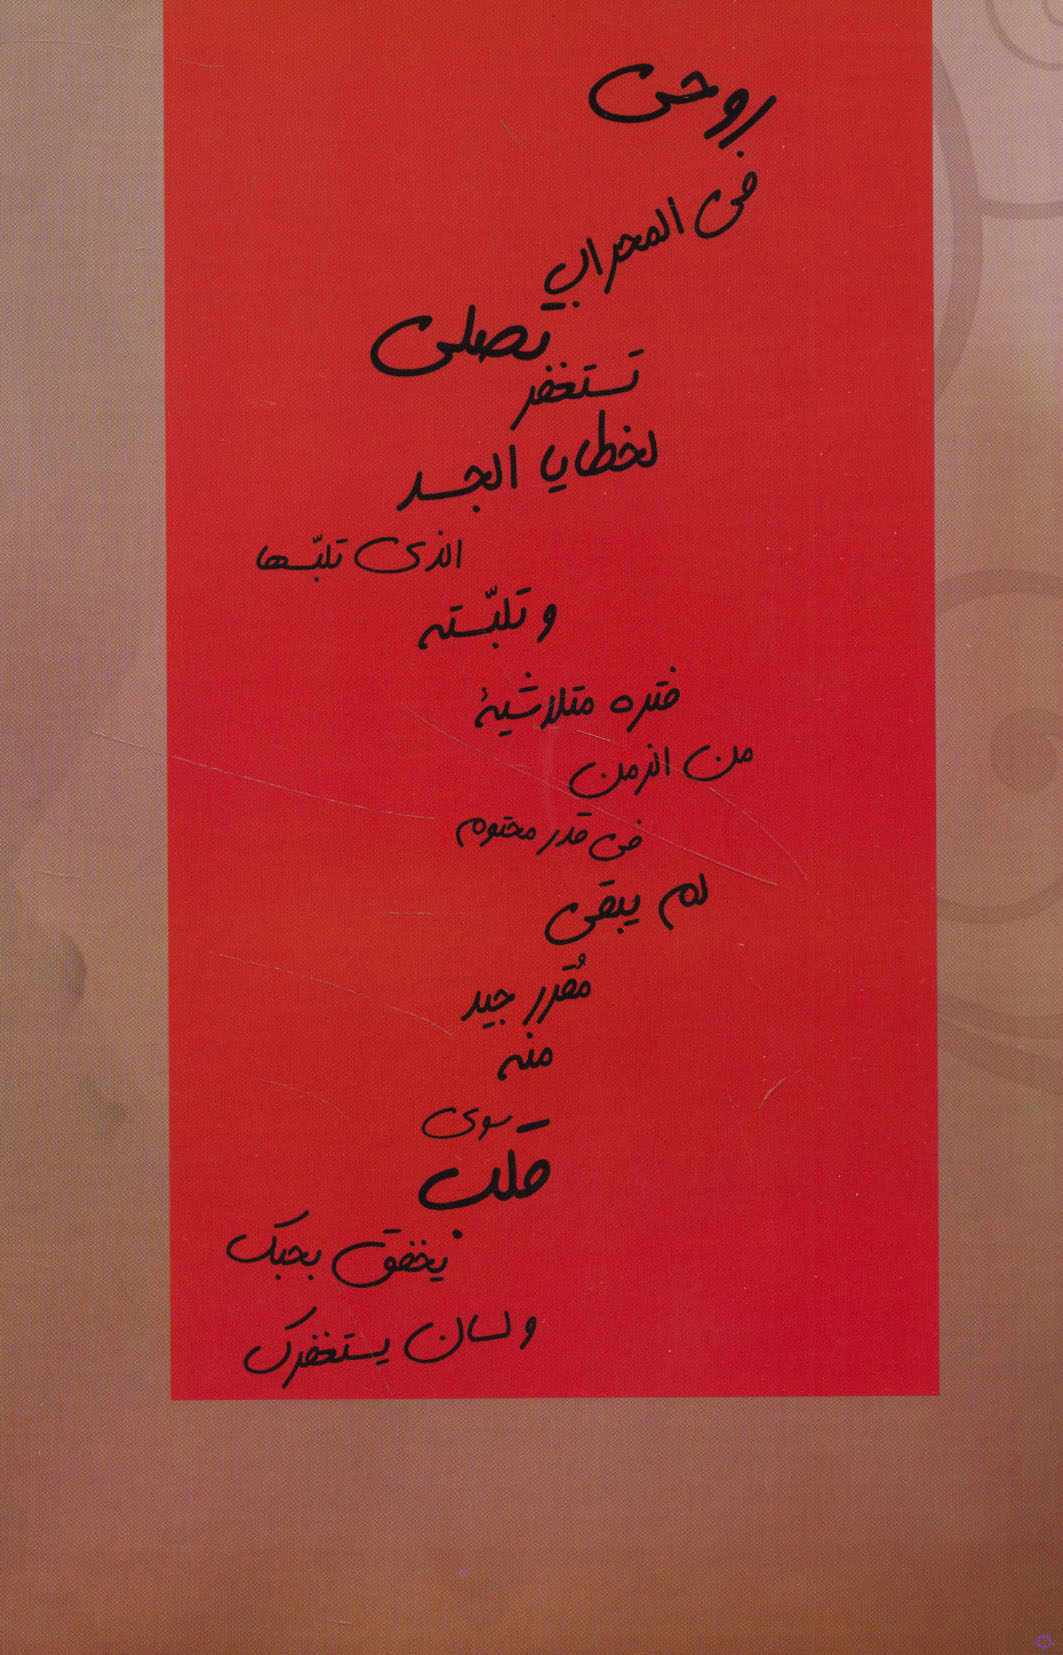 روحى
فى المحراب
تصلى
تستغفر
لخطايا الجسد
الذى تلبّسها
و تلبّسته
فتره متلاشيهٔ
من الزمن
فى قدر محتوم
لم يبقى
مُقدر جيد
منه
سوى
قلب
يخفق بحبك
ولسان يستغفرك